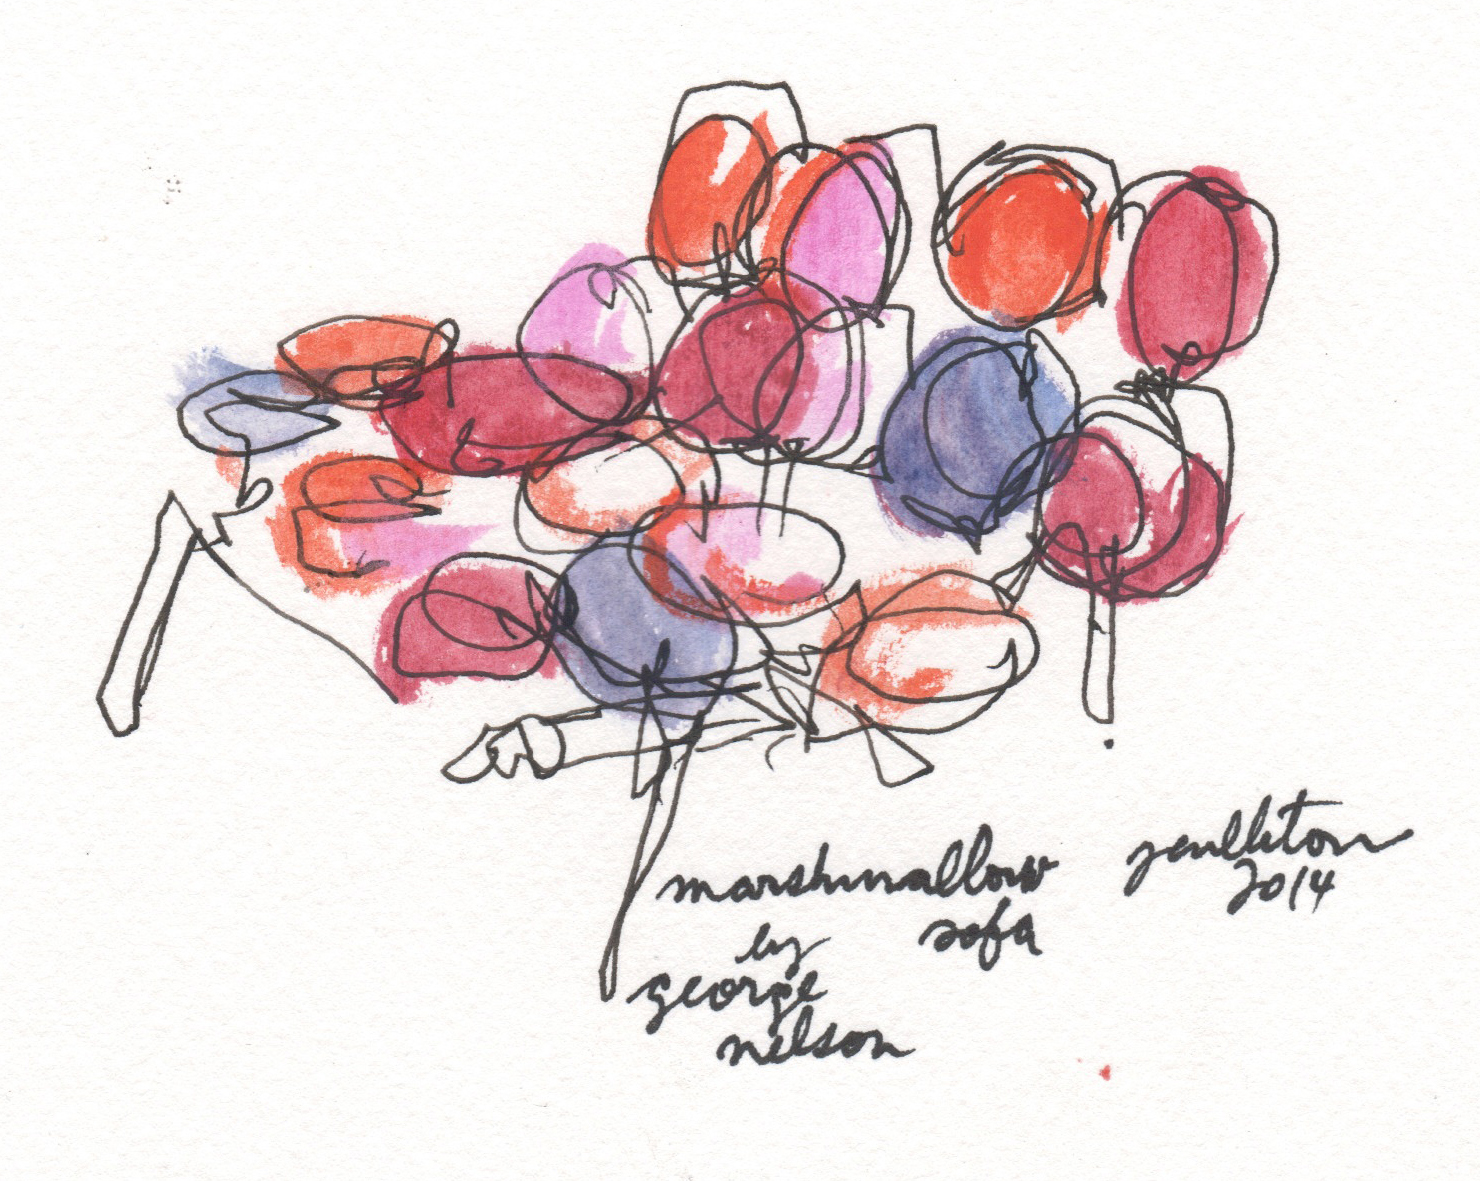 marshmallow
sofa
by
george
nelson
pendleton
2014